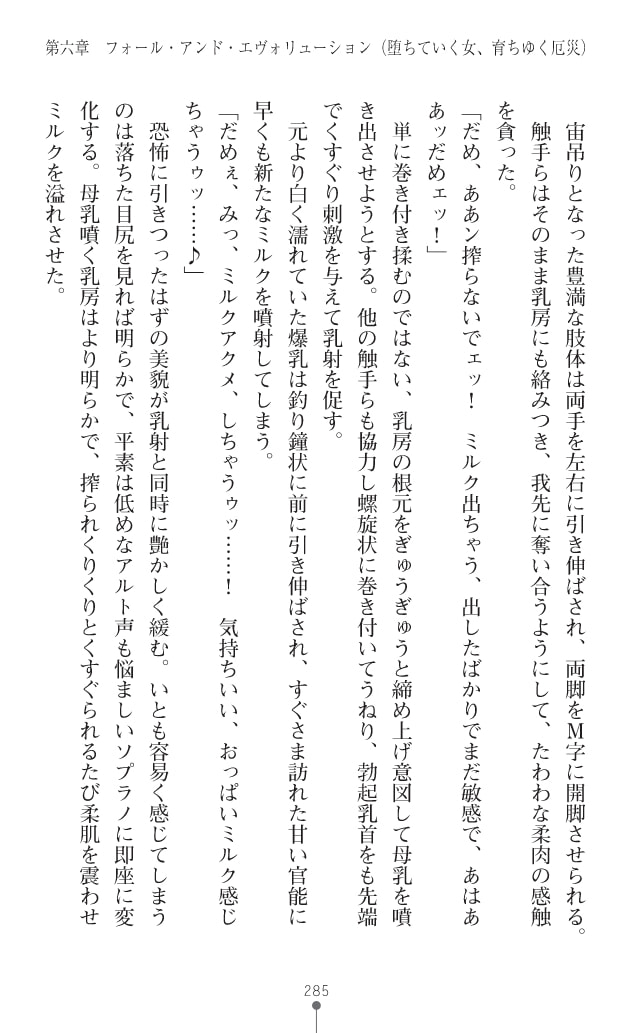 第六章　フォール・アンド・エヴォリューション（堕ちていく女、育ちゆく厄災）
　宙吊りとなった豊満な肢体は両手を左右に引き伸ばされ、両脚をM字に開脚させられる。
　触手らはそのまま乳房にも絡みつき、我先に奪い合うようにして、たわわな柔肉の感触
を貪った。
「だめ、ああン搾らないでェッ！　ミルク出ちゃう、出したばかりでまだ敏感で、あはぁ
あッだめェッ！」
　単に巻き付き揉むのではない、乳房の根元をぎゅうぎゅうと締め上げ意図して母乳を噴
き出させようとする。他の触手らも協力し螺旋状に巻き付いてうねり、勃起乳首をも先端
でくすぐり刺激を与えて乳射を促す。
　元より白く濡れていた爆乳は釣り鐘状に前に引き伸ばされ、すぐさま訪れた甘い官能に
早くも新たなミルクを噴射してしまう。
「だめぇ、みっ、ミルクアクメ、しちゃうゥッ……！　気持ちいい、おっぱいミルク感じ
ちゃうゥッ……♪」
　恐怖に引きつったはずの美貌が乳射と同時に艶かしく緩む。いとも容易く感じてしまう
のは落ちた目尻を見れば明らかで、平素は低めなアルト声も悩ましいソプラノに即座に変
化する。母乳噴く乳房はより明らかで、搾られくりくりとくすぐられるたび柔肌を震わせ
ミルクを溢れさせた。
285